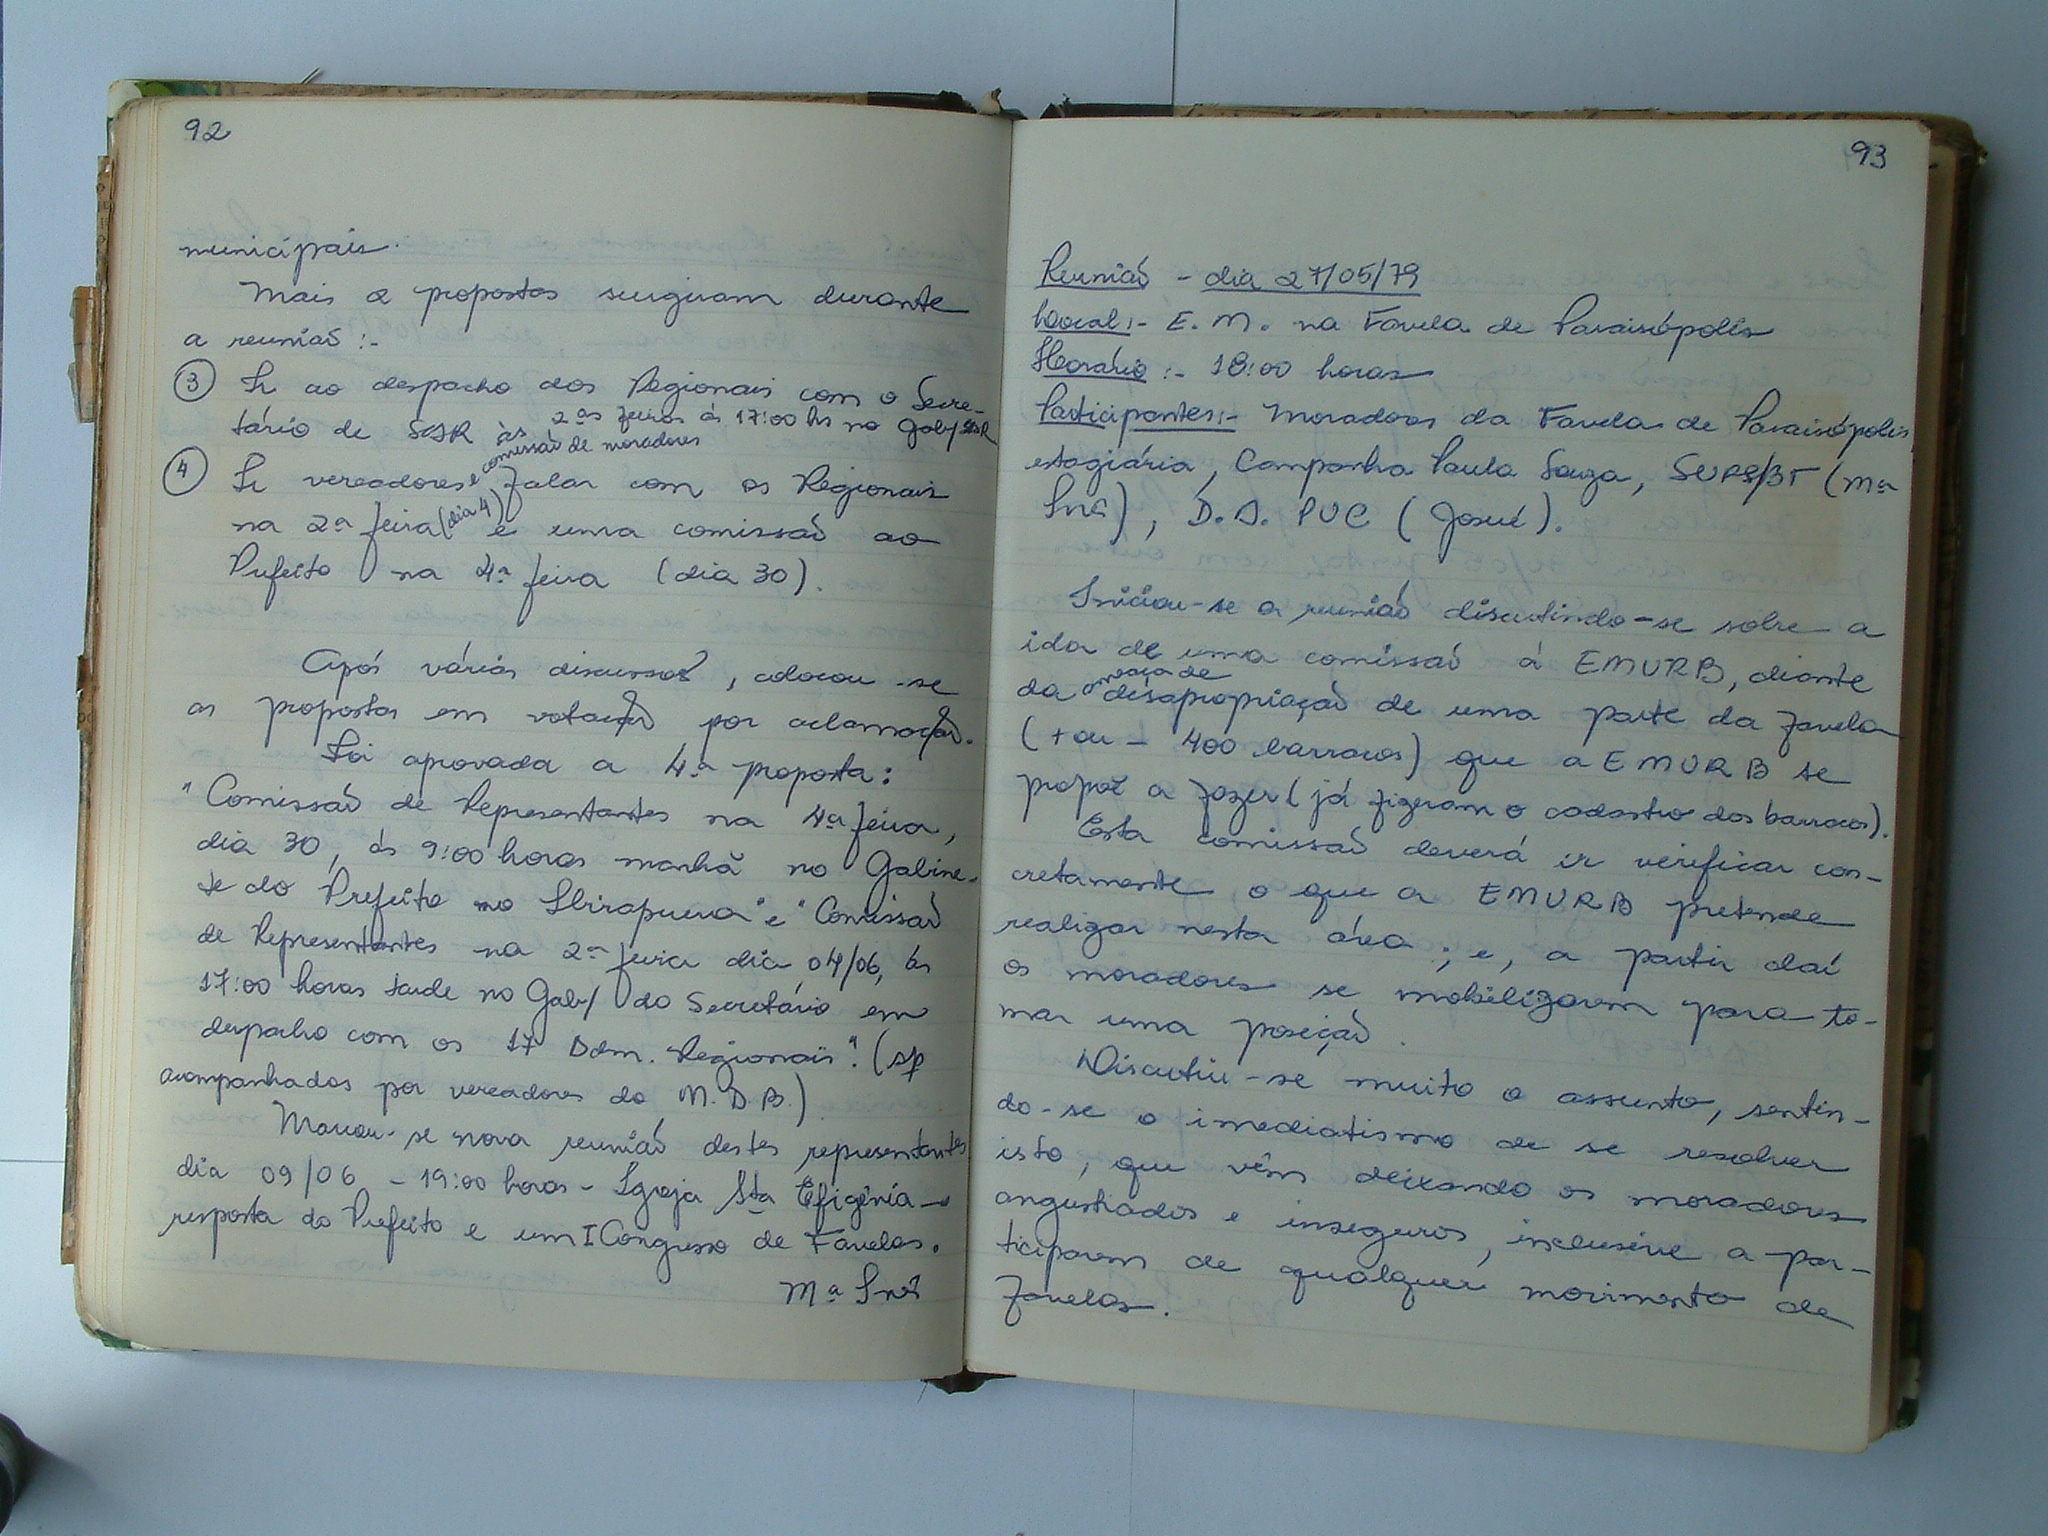 92
municipais.
Mais 2 propostas surgiram durante
a reunião :-
③ Ir ao despacho dos Regionais com o Secre-
tário de SAR às 2as feiras às 17:00 hs no Gab/ SAR
④ Ir vereadores e comissão de moradores falar com os Regionais
na 2ª feira (dia 4) e uma comissão ao
Prefeito na 4ª feira (dia 30).
Após várias discussões, colocou-se
as propostas em votação por aclamação.
Foi aprovada a 4ª proposta:
"Comissão de Representantes na 4ª feira,
dia 30, às 9:00 horas manhã no Gabine-
te do Prefeito no Ibirapuera" e "Comissão
de Representantes na 2ª feira dia 04/06, às
17:00 horas tarde no Gab/ do Secretário em
despacho com os 17 Adm. Regionais". (sp
acompanhados por vereadores do M.D.B.)
Marcou-se nova reunião destes representantes
dia 09/06 - 19:00 horas - Igreja Sta Efigênia →
resposta do Prefeito e um I Congresso de Favelas.
Mª Inês
93
Reunião - dia 27/05/79
Local:- E. M. na Favela de Paraisópolis
Horário :- 18:00 horas
Participantes:- Moradores da Favela de Paraisópolis,
estagiária, Companha Paula Souza, SURS/BT (Mª
Inês), D.A. PUC (Josué).
Iniciou-se a reunião discutindo-se sobre a
ida de uma comissão à EMURB, diante
da ameaça de desapropriação de uma parte da favela
(+ ou - 400 barracos) que a EMURB se
propoë a fazer (já fizeram o cadastro dos barracos).
Esta comissão deverá ir verificar con-
cretamente o que a EMURB pretende
realizar nesta área; e, a partir daí
os moradores se mobilizarem para to-
mar uma posição.
Discutiu-se muito o assunto, sentin-
do-se o imediatismo de se resolver
isto, que vêm deixando os moradores
angustiados e inseguros, inclusive a par-
ticiparem de qualquer movimento de
favelas.